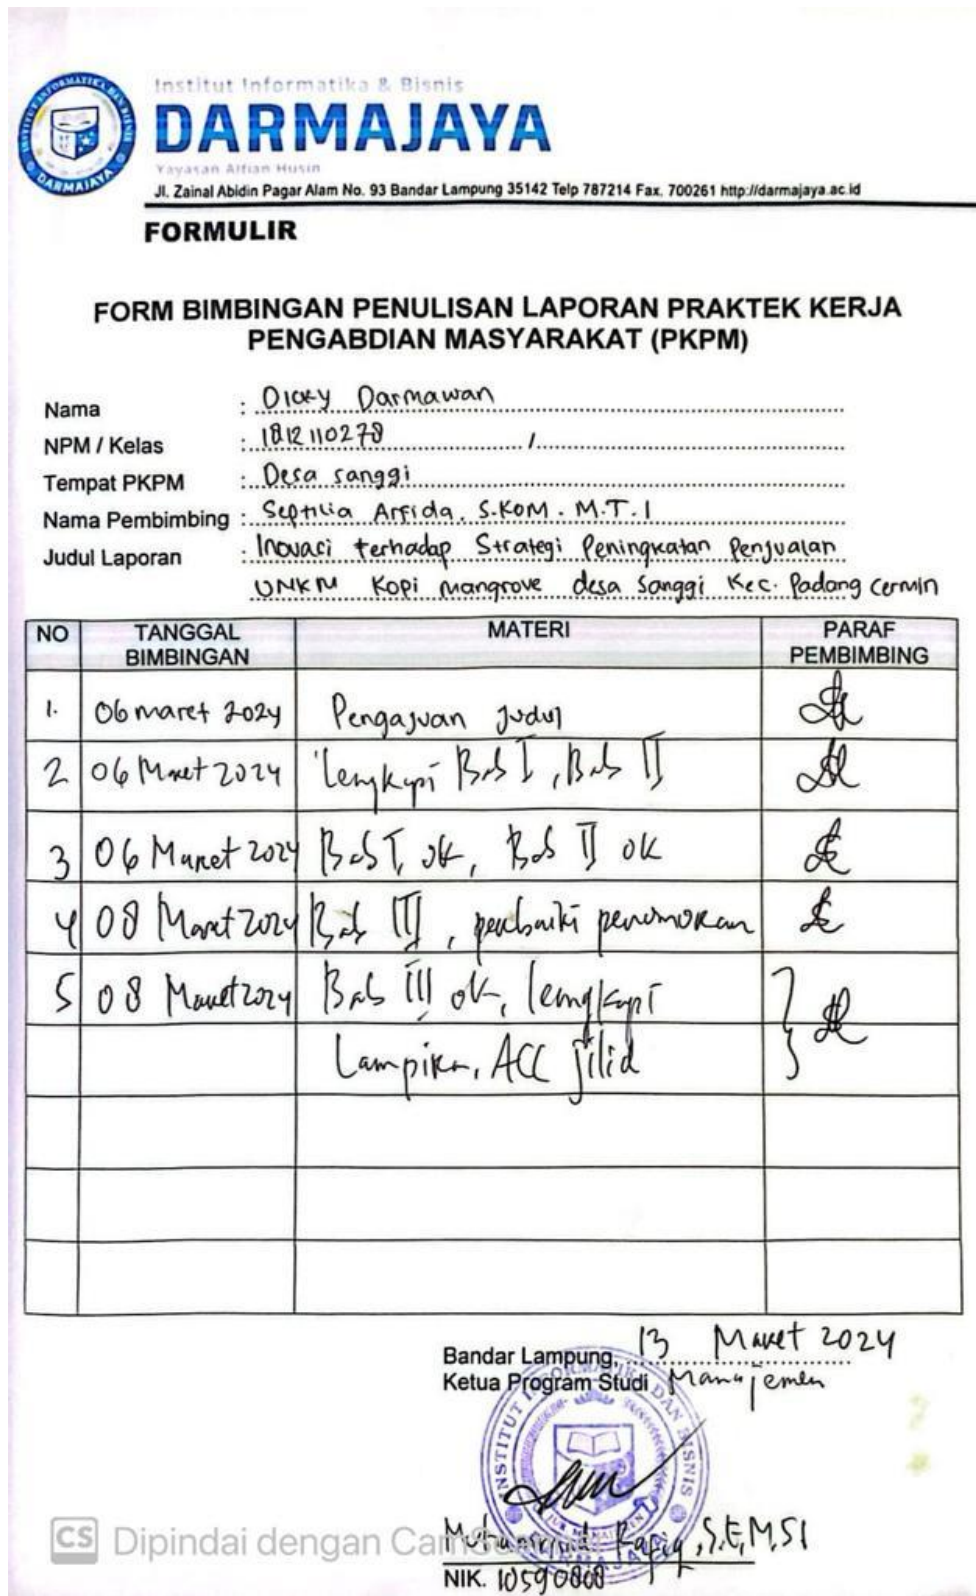 Institut Informatika & Bisnis
DARMAJAYA
Yayasan Alfian Husin
Jl. Zainal Abidin Pagar Alam No. 93 Bandar Lampung 35142 Telp 787214 Fax. 700261 http://darmajaya.ac.id
FORMULIR
FORM BIMBINGAN PENULISAN LAPORAN PRAKTEK KERJA
PENGABDIAN MASYARAKAT (PKPM)
Nama : Dicky Darmawan
NPM / Kelas : 1812110278 /
Tempat PKPM : Desa sanggi
Nama Pembimbing : Septilia Arfida. S.KOM. M.T.I
Judul Laporan : Inovaci terhadap Strategi Peningkatan Penjualan
UNKM Kopi mangrove desa Sanggi Kec. Padang cermin
NO TANGGAL BIMBINGAN MATERI PARAF PEMBIMBING
1. 06 maret 2024 Pengajuan judul
2 06 Maret 2024 Lengkapi Bab I, Bab II
3 06 Maret 2024 Bab I ok, Bab II ok
4 08 Maret 2024 Bab III, perbaiki penomoran
5 08 Maret 2024 Bab III ok, lengkapi
Lampiran, ACC jilid
Bandar Lampung, 13 Maret 2024
Ketua Program Studi Manajemen
INSTITUT INFORMATIKA DAN BISNIS
DARMAJAYA
CS Dipindai dengan CamScanner
Rafiq, S.E, M.SI
NIK. 10590808